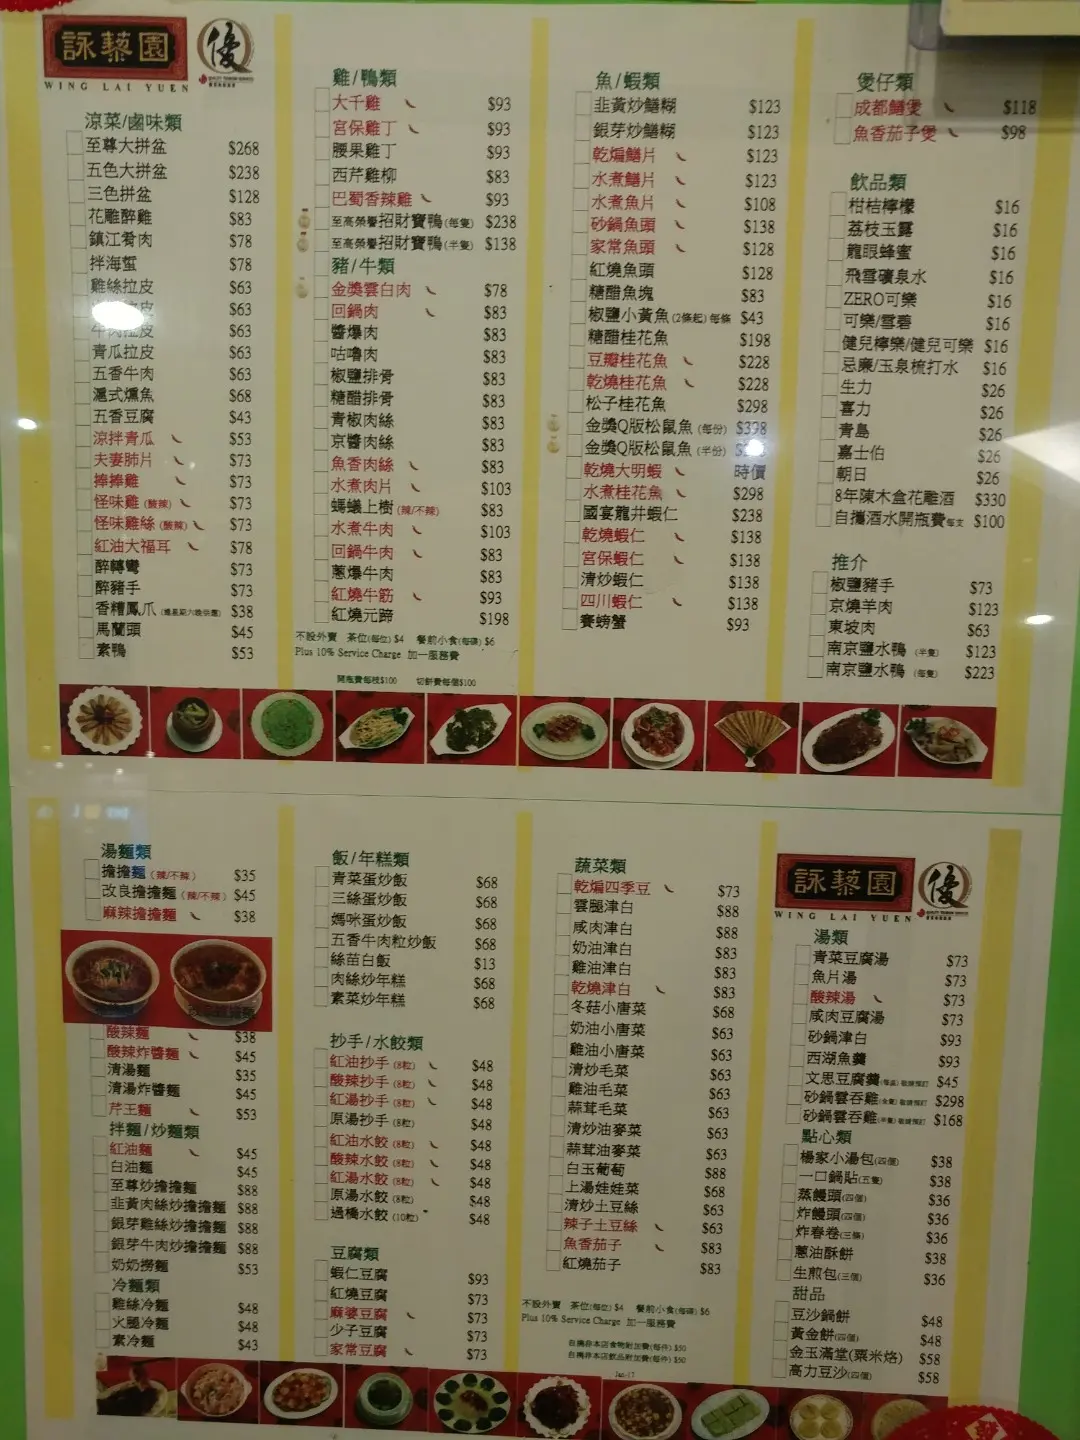 詠藜園
WING LAI YUEN
優
涼菜/鹵味類
至尊大拼盆 $268
五色大拼盆 $238
三色拼盆 $128
花雕醉雞 $83
鎮江肴肉 $78
拌海蜇 $78
雞絲拉皮 $63
拉皮 $63
牛肉拉皮 $63
青瓜拉皮 $63
五香牛肉 $63
滬式燻魚 $68
五香豆腐 $43
涼拌青瓜 $53
夫妻肺片 $73
捧捧雞 $73
怪味雞 (酸辣) $73
怪味雞絲 (酸辣) $73
紅油大福耳 $78
醉轉彎 $73
醉豬手 $73
香糟鳳爪 $38
馬蘭頭 $45
素鴨 $53
雞/鴨類
大千雞 $93
宮保雞丁 $93
腰果雞丁 $93
西芹雞柳 $83
巴蜀香辣雞 $93
至高榮譽招財寶鴨 (每隻) $238
至高榮譽招財寶鴨 (半隻) $138
豬/牛類
金獎雲白肉 $78
回鍋肉 $83
醬爆肉 $83
咕嚕肉 $83
椒鹽排骨 $83
糖醋排骨 $83
青椒肉絲 $83
京醬肉絲 $83
魚香肉絲 $83
水煮肉片 $103
螞蟻上樹 (辣/不辣) $83
水煮牛肉 $103
回鍋牛肉 $83
蔥爆牛肉 $83
紅燒牛筋 $93
紅燒元蹄 $198
不設外賣 茶位(每位) $4 餐前小食(每碟) $6
Plus 10% Service Charge 加一服務費
開瓶費每枝$100 切餅費每個$100
魚/蝦類
韭黃炒鱔糊 $123
銀芽炒鱔糊 $123
乾煸鱔片 $123
水煮鱔片 $123
水煮魚片 $108
砂鍋魚頭 $138
家常魚頭 $128
紅燒魚頭 $128
糖醋魚塊 $83
椒鹽小黃魚 (2條起) 每條 $43
糖醋桂花魚 $198
豆瓣桂花魚 $228
乾燒桂花魚 $228
松子桂花魚 $298
金獎Q版松鼠魚 (每份) $398
金獎Q版松鼠魚 (半份)
乾燒大明蝦 時價
水煮桂花魚 $298
國宴龍井蝦仁 $238
乾燒蝦仁 $138
宮保蝦仁 $138
清炒蝦仁 $138
四川蝦仁 $138
賽螃蟹 $93
煲仔類
成都鱔煲 $118
魚香茄子煲 $98
飲品類
柑桔檸檬 $16
荔枝玉露 $16
龍眼蜂蜜 $16
飛雪礦泉水 $16
ZERO可樂 $16
可樂/雪碧 $16
健兒檸樂/健兒可樂 $16
忌廉/玉泉梳打水 $16
生力 $26
喜力 $26
青島 $26
嘉士伯 $26
朝日 $26
8年陳木盒花雕酒 $330
自攜酒水開瓶費每支 $100
推介
椒鹽豬手 $73
京燒羊肉 $123
東坡肉 $63
南京鹽水鴨 (半隻) $123
南京鹽水鴨 (每隻) $223
湯麵類
擔擔麵 (辣/不辣) $35
改良擔擔麵 (辣/不辣) $45
麻辣擔擔麵 $38
酸辣麵 $38
酸辣炸醬麵 $45
清湯麵 $35
清湯炸醬麵 $45
芹王麵 $53
拌麵/炒麵類
紅油麵 $45
白油麵 $45
至尊炒擔擔麵 $88
韭黃肉絲炒擔擔麵 $88
銀芽雞絲炒擔擔麵 $88
銀芽牛肉炒擔擔麵 $88
奶奶撈麵 $53
冷麵類
雞絲冷麵 $48
火腿冷麵 $48
素冷麵 $43
飯/年糕類
青菜蛋炒飯 $68
三絲蛋炒飯 $68
媽咪蛋炒飯 $68
五香牛肉粒炒飯 $68
絲苗白飯 $13
肉絲炒年糕 $68
素菜炒年糕 $68
抄手/水餃類
紅油抄手 (8粒) $48
酸辣抄手 (8粒) $48
紅湯抄手 (8粒) $48
原湯抄手 (8粒) $48
紅油水餃 (8粒) $48
酸辣水餃 (8粒) $48
紅湯水餃 (8粒) $48
原湯水餃 (8粒) $48
過橋水餃 (10粒) $48
豆腐類
蝦仁豆腐 $93
紅燒豆腐 $73
麻婆豆腐 $73
少子豆腐 $73
家常豆腐 $73
蔬菜類
乾煸四季豆 $73
雲腿津白 $88
咸肉津白 $88
奶油津白 $83
雞油津白 $83
乾燒津白 $83
冬菇小唐菜 $68
奶油小唐菜 $63
雞油小唐菜 $63
清炒毛菜 $63
雞油毛菜 $63
蒜茸毛菜 $63
清炒油麥菜 $63
蒜茸油麥菜 $63
白玉葡萄 $88
上湯娃娃菜 $68
清炒土豆絲 $63
辣子土豆絲 $63
魚香茄子 $83
紅燒茄子 $83
不設外賣 茶位(每位) $4 餐前小食(每碟) $6
Plus 10% Service Charge 加一服務費
自攜非本店食物附加費(每件) $50
自攜非本店飲品附加費(每件) $50
Jan-17
詠藜園
WING LAI YUEN
優
湯類
青菜豆腐湯 $73
魚片湯 $73
酸辣湯 $73
咸肉豆腐湯 $73
砂鍋津白 $93
西湖魚羹 $93
文思豆腐羹(每品) 敬請預訂 $45
砂鍋雲吞雞(全隻) 敬請預訂 $298
砂鍋雲吞雞(半隻) 敬請預訂 $168
點心類
楊家小湯包(四個) $38
一口鍋貼(五隻) $38
蒸饅頭(四個) $36
炸饅頭(四個) $36
炸春卷(三條) $36
蔥油酥餅 $38
生煎包(三個) $36
甜品
豆沙鍋餅 $48
黃金餅(四個) $48
金玉滿堂(粟米烙) $58
高力豆沙(四個) $58